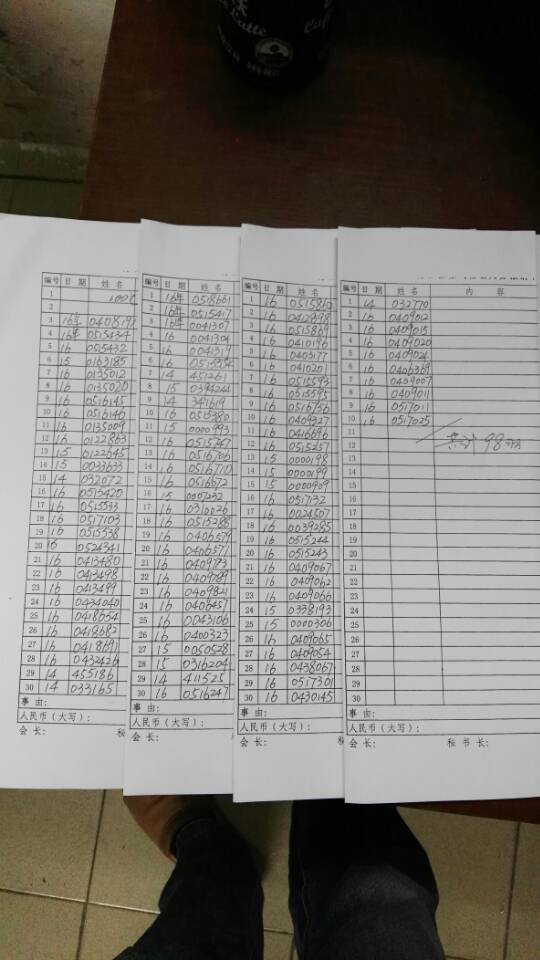 Latte
编号 日 期 姓 名
1 100份
2
3 16年 0408191
4 16年 0515434
5 16 0515432
6 15 0163185
7 16 0135012
8 16 0135020
9 16 0516145
10 16 0516146
11 16 0135009
12 16 0122863
13 15 0122645
14 15 0033633
15 14 032072
16 16 0513420
17 16 0515533
18 16 0517103
19 16 0515538
20 16 0524341
21 16 0413480
22 16 0413498
23 16 0413499
24 16 0434040
25 16 0418654
26 16 0418682
27 16 0418691
28 16 0432426
29 14 455186
30 14 033165
事 由:
人民币（大写）:
会 长:
编号 日 期 姓 名
1 16年 0518661
2 16年 0515417
3 16年 0041307
4 16 0041304
5 16 0041311
6 16 0515354
7 14 451261
8 15 0394244
9 14 341619
10 16 0515380
11 15 0000993
12 16 0515747
13 16 0516706
14 16 0516710
15 16 0516672
16 15 0007232
17 16 0310026
18 16 0515285
19 16 0406579
20 16 0406577
21 16 0409793
22 16 0409789
23 16 0409821
24 16 0406457
25 16 0043106
26 16 0400323
27 15 0050528
28 15 0316204
29 14 411525
30 16 0516247
事 由:
人民币（大写）:
会 长:
编号 日 期 姓 名
1 16 0515862
2 16 0402898
3 16 0515869
4 16 0410196
5 16 0403177
6 16 0410201
7 16 0515593
8 16 0515595
9 16 0516756
10 16 0409327
11 16 0416696
12 16 0515257
13 15 0000198
14 15 0000199
15 15 0000909
16 16 0517132
17 16 0024507
18 16 0039285
19 16 0515244
20 16 0515243
21 16 0409067
22 16 0409062
23 16 0409066
24 15 0338193
25 15 0000306
26 16 0409065
27 16 0409054
28 16 0438067
29 16 0517301
30 16 0430145
事 由:
人民币（大写）:
会 长:
编号 日 期 姓 名 内 容
1 14 032770
2 16 0409012
3 16 0409015
4 16 0409020
5 16 0409024
6 16 0406369
7 16 0409007
8 16 0409011
9 16 0517011
10 16 0517025
11
12 共计98份
13
14
15
16
17
18
19
20
21
22
23
24
25
26
27
28
29
30
事 由:
人民币（大写）:
会 长: 秘 书 长: